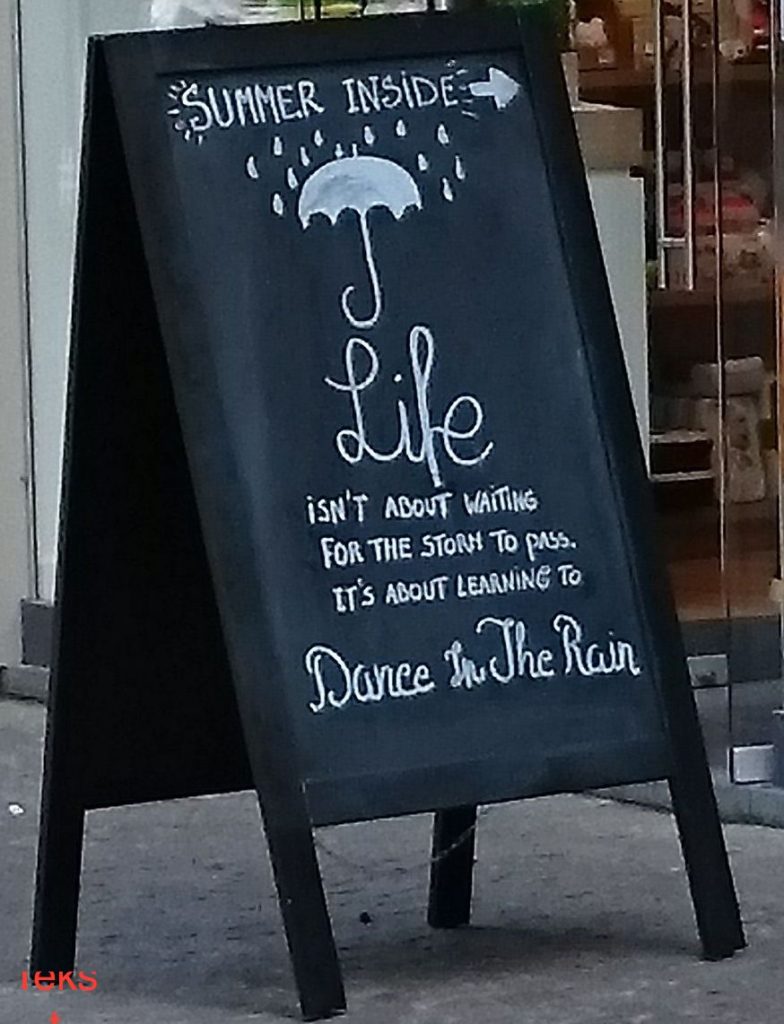 SUMMER INSiDE
Life
iSN'T ABOUT WAiTiNG
FOR THE STORM TO PASS.
IT'S ABOUT LEARNiNG TO
Dance In The Rain